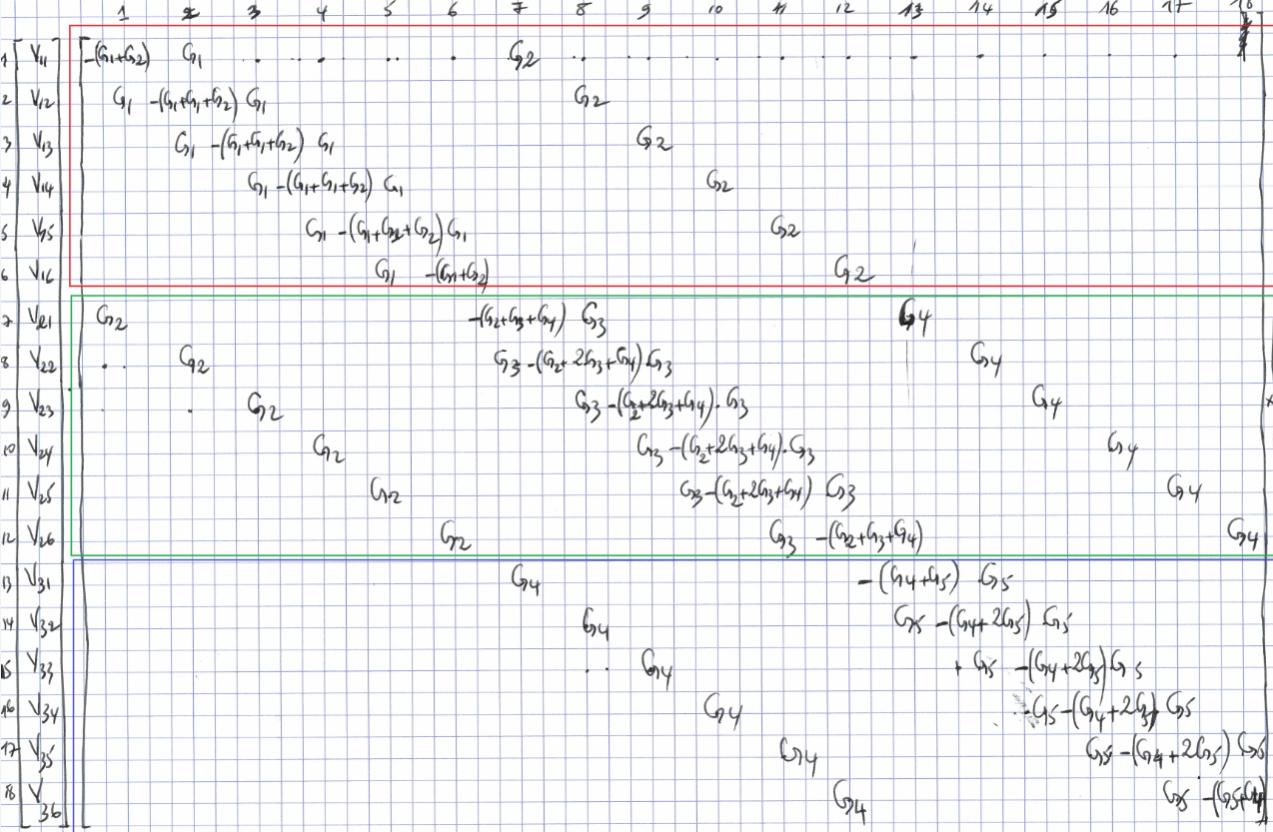 1 2 3 4 5 6 7 8 9 10 11 12 13 14 15 16 17 18
1 V11 -(G1+G2) G1 . . . . . G2 . . . . . . . . . .
2 V12 G1 -(G1+G1+G2) G1 G2
3 V13 G1 -(G1+G1+G2) G1 G2
4 V14 G1 -(G1+G1+G2) G1 G2
5 V15 G1 -(G1+G1+G2) G1 G2
6 V16 G1 -(G1+G2) G2
7 V21 G2 -(G2+G3+G4) G3 G4
8 V22 G2 G3 -(G2+2G3+G4) G3 G4
9 V23 G2 G3 -(G2+2G3+G4) G3 G4
10 V24 G2 G3 -(G2+2G3+G4) G3 G4
11 V25 G2 G3 -(G2+2G3+G4) G3 G4
12 V26 G2 G3 -(G2+G3+G4) G4
13 V31 G4 -(G4+G5) G5
14 V32 G4 G5 -(G4+2G5) G5
15 V33 G4 G5 -(G4+2G5) G5
16 V34 G4 G5 -(G4+2G5) G5
17 V35 G4 G5 -(G4+2G5) G5
18 V36 G4 G5 -(G5+G4)